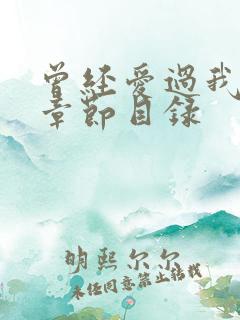 曾经爱过我
章節目録
明熙尔尔
未经同意禁止转载